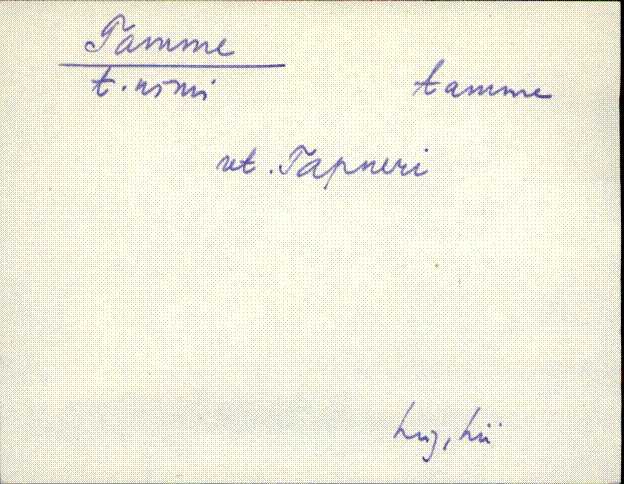 Tamme
t. nimi tamme
vt. Tapneri
Lüg, Lii